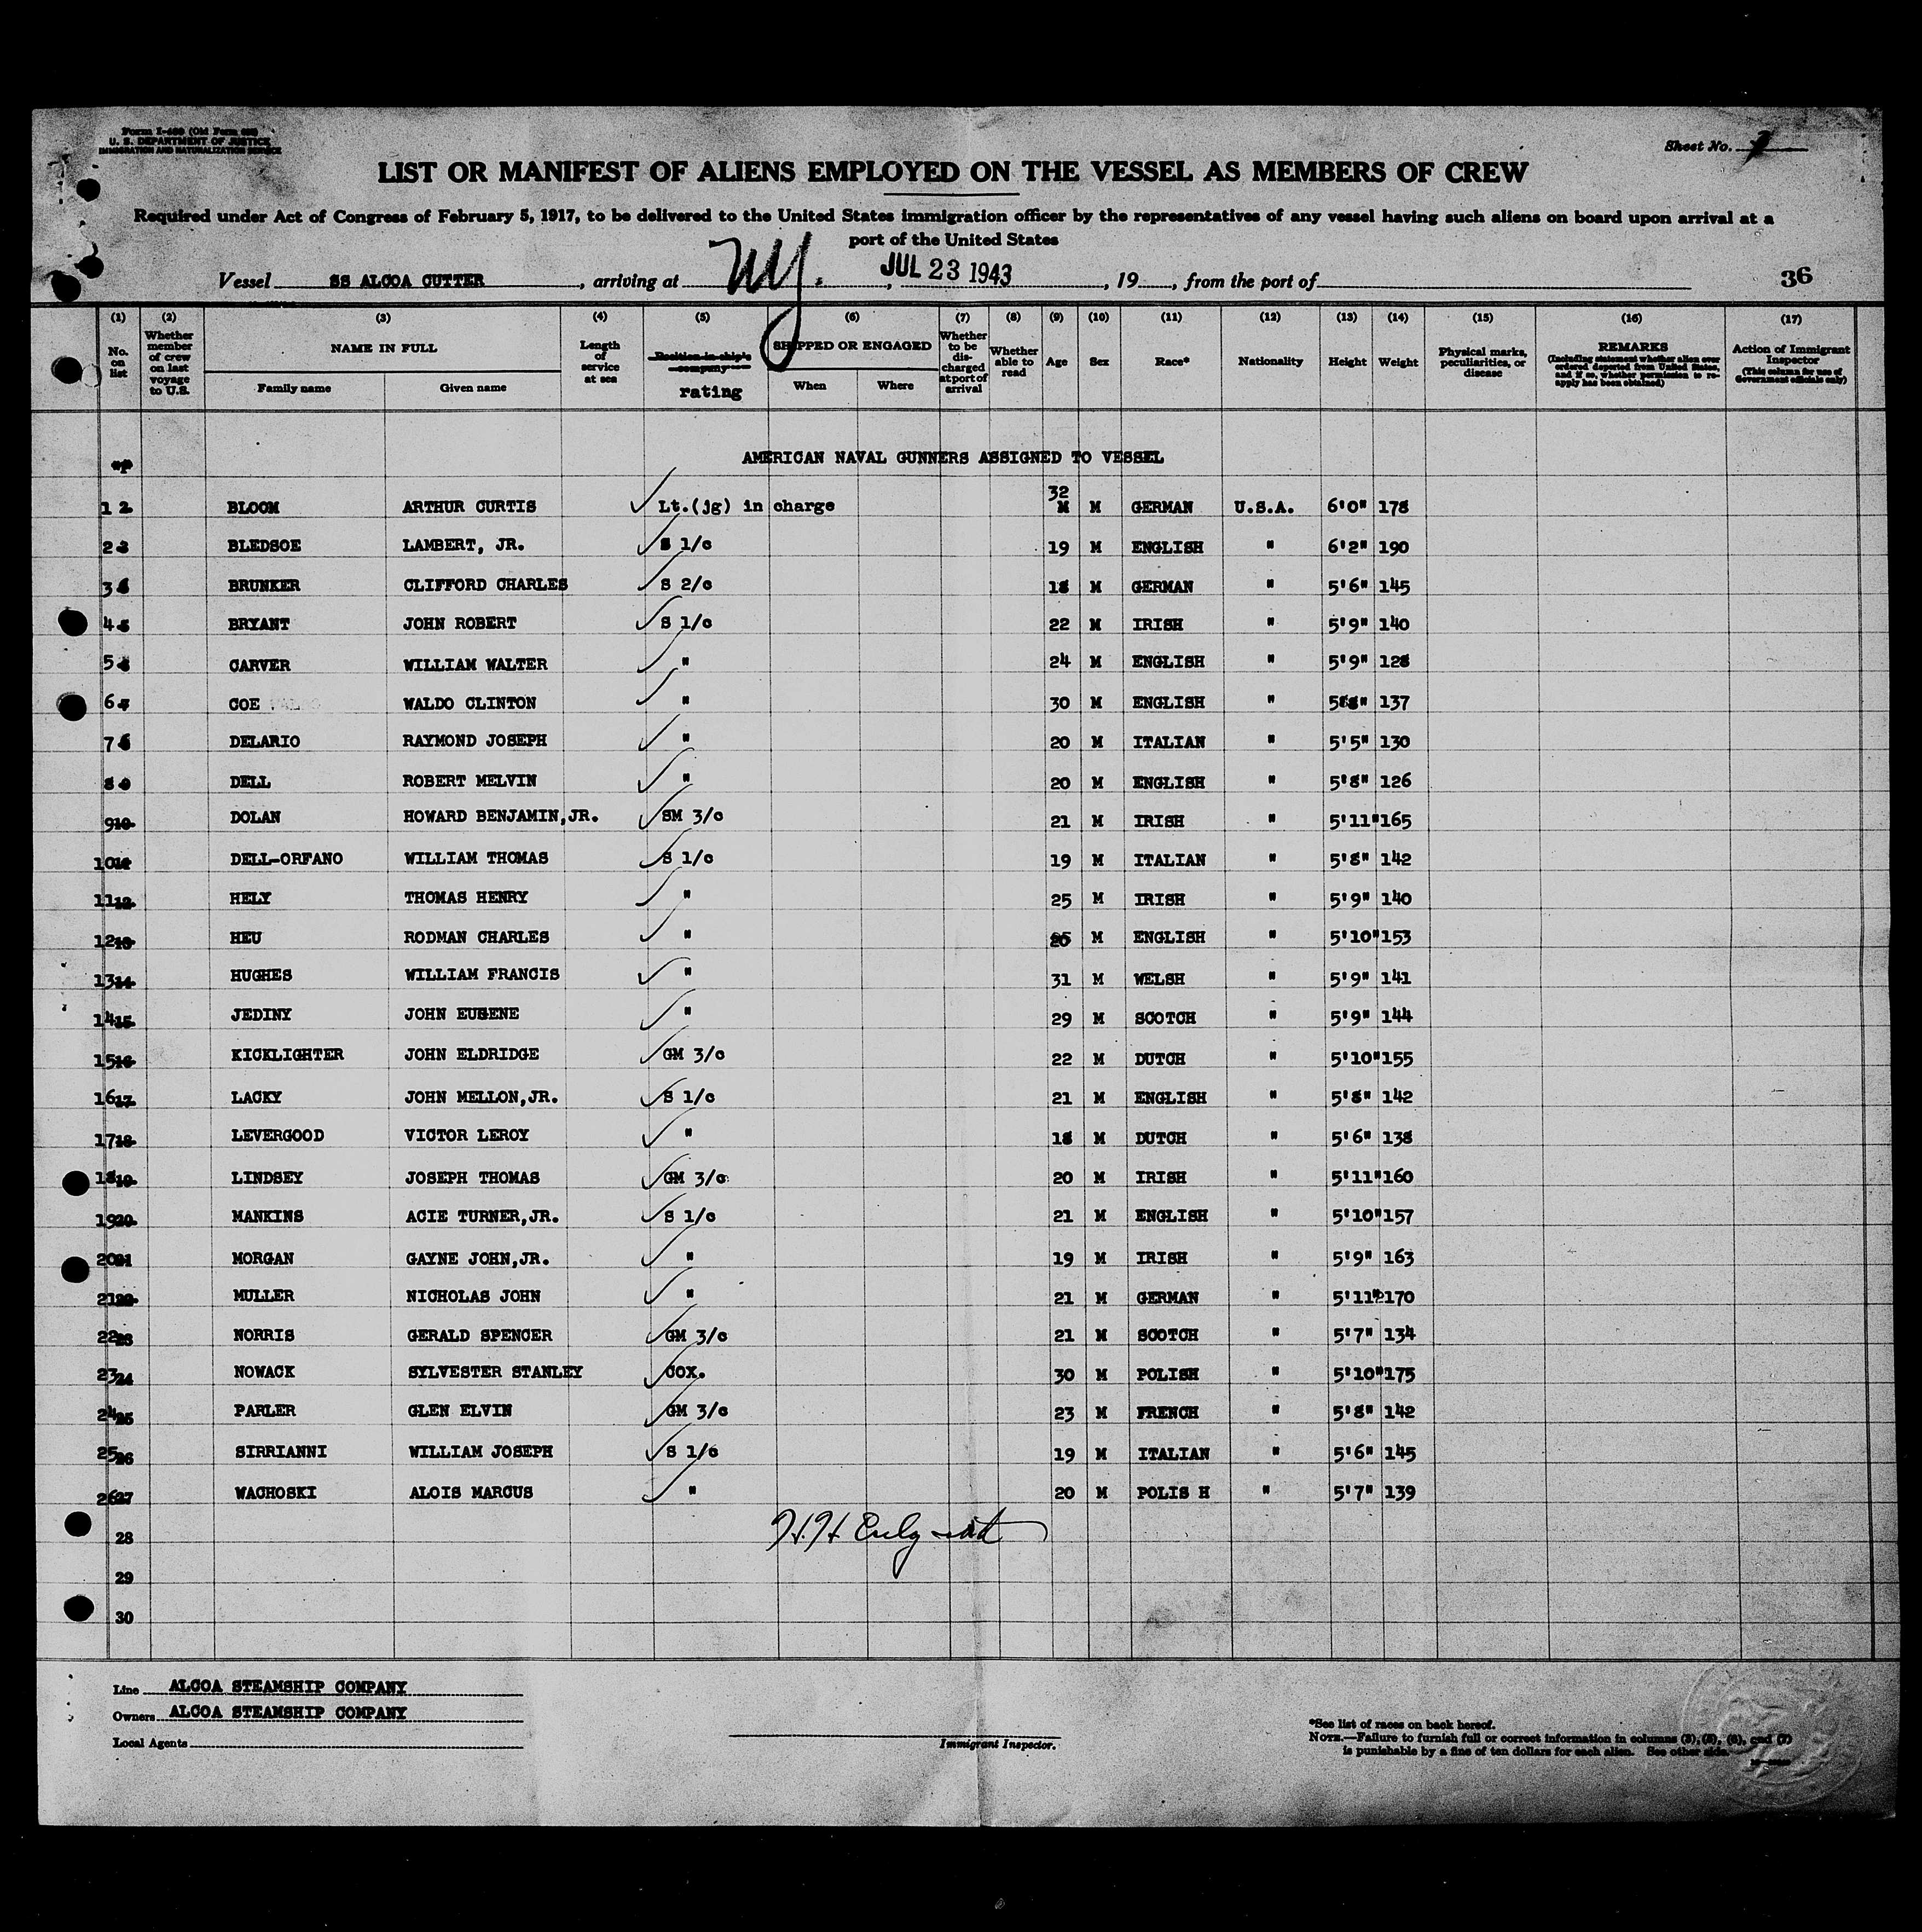 Form I-480 (Old Form 689)
U. S. DEPARTMENT OF JUSTICE
IMMIGRATION AND NATURALIZATION SERVICE
Sheet No.
LIST OR MANIFEST OF ALIENS EMPLOYED ON THE VESSEL AS MEMBERS OF CREW
Required under Act of Congress of February 5, 1917, to be delivered to the United States immigration officer by the representatives of any vessel having such aliens on board upon arrival at a
port of the United States
Vessel SS ALCOA CUTTER, arriving at NY., JUL 23 1943, 19 , from the port of 36
(1) No. on list
(2) Whether member of crew on last voyage to U.S.
(3) NAME IN FULL Family name Given name
(4) Length of service at sea
(5) Position in ship's company rating
(6) SHIPPED OR ENGAGED When Where
(7) Whether to be discharged at port of arrival
(8) Whether able to read
(9) Age
(10) Sex
(11) Race*
(12) Nationality
(13) Height
(14) Weight
(15) Physical marks, peculiarities, or disease
(16) REMARKS (Including statement whether alien ever ordered deported from United States, and if so, whether permission to reapply has been obtained)
(17) Action of Immigrant Inspector (This column for use of Government officials only)
AMERICAN NAVAL GUNNERS ASSIGNED TO VESSEL
1 BLOOM ARTHUR CURTIS Lt.(jg) in charge 32 M GERMAN U.S.A. 6'0" 178
2 BLEDSOE LAMBERT, JR. S 1/c 19 M ENGLISH " 6'2" 190
3 BRUNKER CLIFFORD CHARLES S 2/c 18 M GERMAN " 5'6" 145
4 BRYANT JOHN ROBERT S 1/c 22 M IRISH " 5'9" 140
5 CARVER WILLIAM WALTER " 24 M ENGLISH " 5'9" 128
6 COE WALDO CLINTON " 30 M ENGLISH " 5'8" 137
7 DELARIO RAYMOND JOSEPH " 20 M ITALIAN " 5'5" 130
8 DELL ROBERT MELVIN " 20 M ENGLISH " 5'8" 126
9 DOLAN HOWARD BENJAMIN,JR. SM 3/c 21 M IRISH " 5'11" 165
10 DELL-ORFANO WILLIAM THOMAS S 1/c 19 M ITALIAN " 5'8" 142
11 HELY THOMAS HENRY " 25 M IRISH " 5'9" 140
12 HEU RODMAN CHARLES " M ENGLISH " 5'10" 153
13 HUGHES WILLIAM FRANCIS " 31 M WELSH " 5'9" 141
14 JEDINY JOHN EUGENE " 29 M SCOTCH " 5'9" 144
15 KICKLIGHTER JOHN ELDRIDGE GM 3/c 22 M DUTCH " 5'10" 155
16 LACKY JOHN MELLON,JR. S 1/c 21 M ENGLISH " 5'8" 142
17 LEVERGOOD VICTOR LEROY " 18 M DUTCH " 5'6" 138
18 LINDSEY JOSEPH THOMAS GM 3/c 20 M IRISH " 5'11" 160
19 MANKINS ACIE TURNER,JR. S 1/c 21 M ENGLISH " 5'10" 157
20 MORGAN GAYNE JOHN,JR. " 19 M IRISH " 5'9" 163
21 MULLER NICHOLAS JOHN " 21 M GERMAN " 5'11" 170
22 NORRIS GERALD SPENCER GM 3/c 21 M SCOTCH " 5'7" 134
23 NOWACK SYLVESTER STANLEY COX. 30 M POLISH " 5'10" 175
24 PARLER GLEN ELVIN GM 3/c 23 M FRENCH " 5'8" 142
25 SIRRIANNI WILLIAM JOSEPH S 1/c 19 M ITALIAN " 5'6" 145
26 WACHOSKI ALOIS MARCUS " 20 M POLIS H " 5'7" 139
28
29
30
Line ALCOA STEAMSHIP COMPANY
Owners ALCOA STEAMSHIP COMPANY
Local Agents
Immigrant Inspector.
*See list of races on back hereof.
NOTE.—Failure to furnish full or correct information in columns (3), (5), (6), and (7)
is punishable by a fine of ten dollars for each alien. See other side.